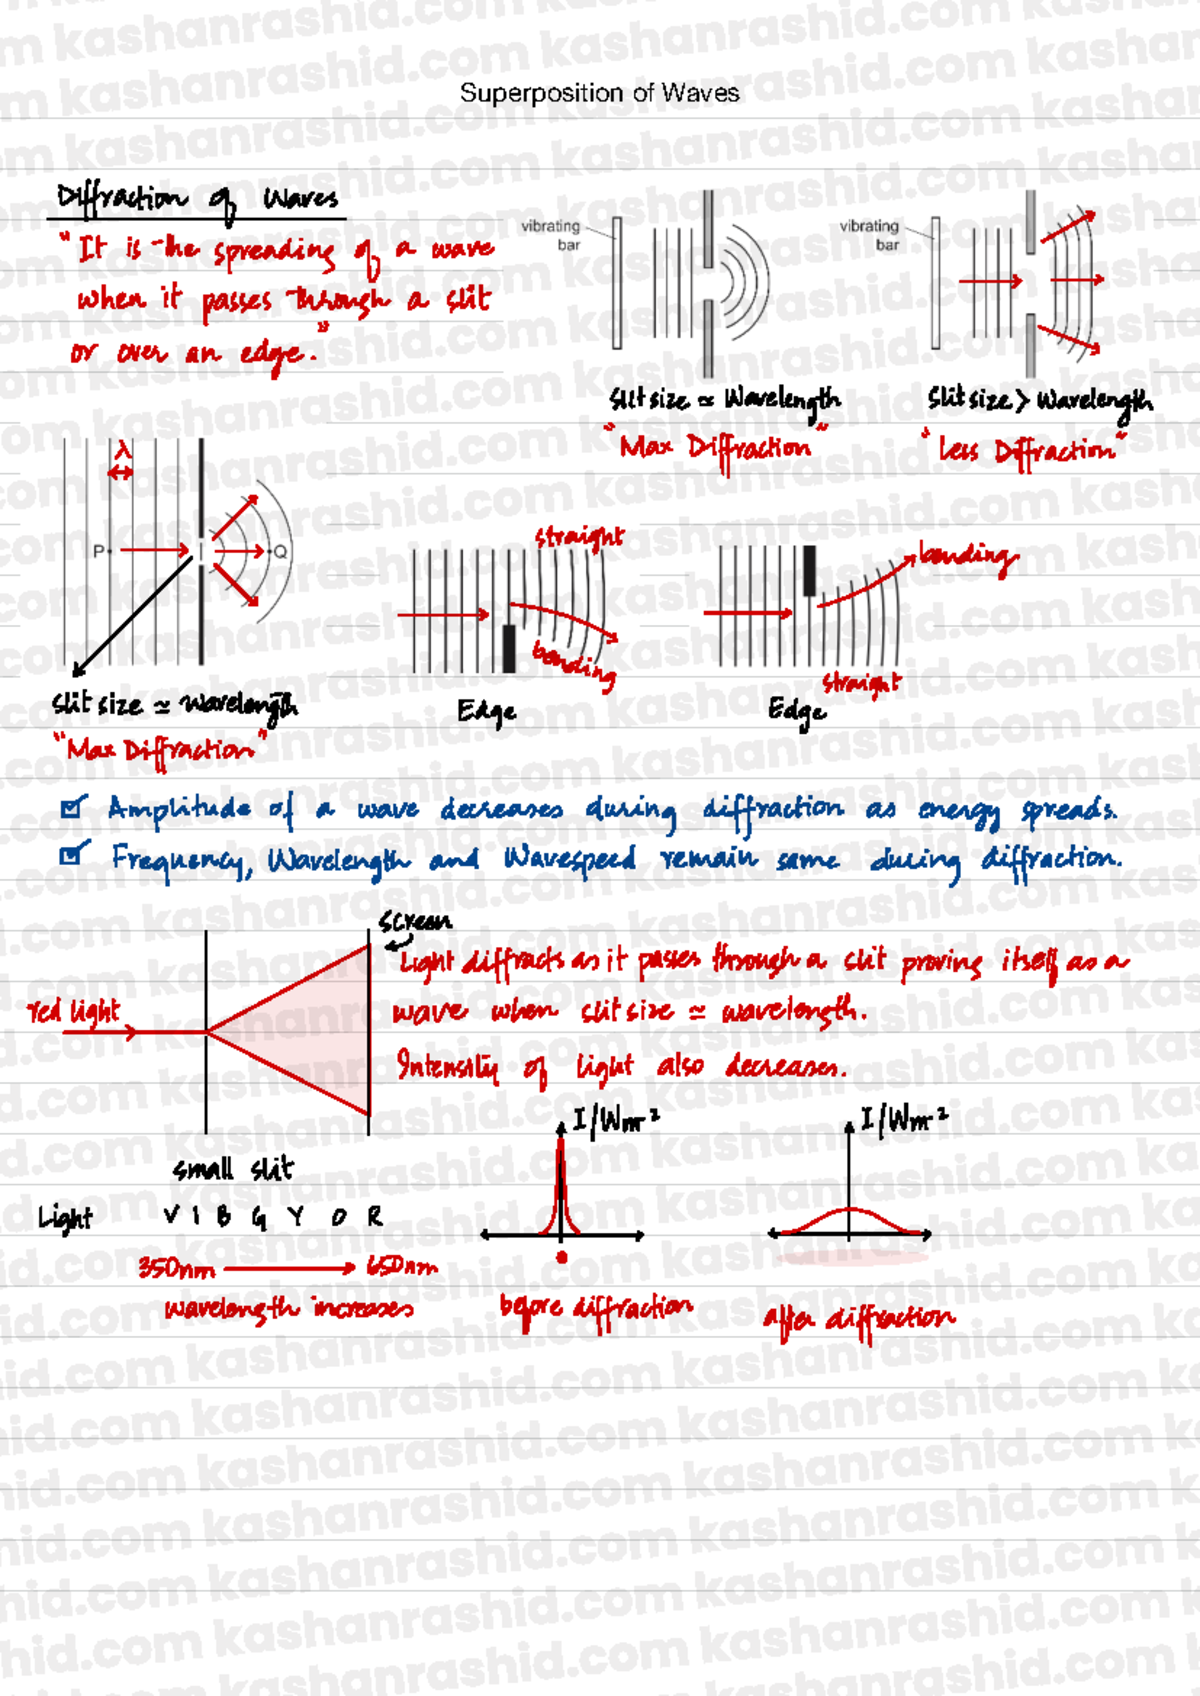 Superposition of Waves
Diffraction of Waves
"It is the spreading of a wave
when it passes through a slit
or over an edge."
vibrating
bar
Slit size ≃ Wavelength
"Max Diffraction"
vibrating
bar
Slit size > Wavelength
"Less Diffraction"
λ
P
Q
Slit size ≃ Wavelength
"Max Diffraction"
straight
bending
Edge
bending
straight
Edge
☑ Amplitude of a wave decreases during diffraction as energy spreads.
☑ Frequency, Wavelength and Wavespeed remain same during diffraction.
Screen
red light
Light diffracts as it passes through a slit proving itself as a
wave when slit size ≃ wavelength.
Intensity of light also decreases.
small slit
Light V I B G Y O R
350nm → 650nm
wavelength increases
I/Wm⁻²
before diffraction
I/Wm⁻²
after diffraction
kashanrashid.com